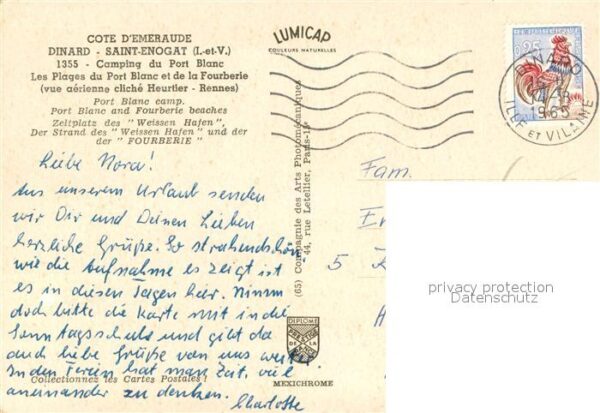 COTE D'EMERAUDE
DINARD - SAINT-ENOGAT (I.-et-V.)
1355 - Camping du Port Blanc
Les Plages du Port Blanc et de la Fourberie
(vue aérienne cliché Heurtier - Rennes)
Port Blanc camp.
Port Blanc and Fourberie beaches
Zeltplatz des " Weissen Hafen",
Der Strand des "Weissen Hafen" und der
der " FOURBERIE "
LUMICAP
COULEURS NATURELLES
0,25
DINARD
1965
ILLE ET VILAINE
Liebe Nora!
Aus unserem Urlaub senden
wir Dir und Deinen Lieben
herzliche Grüße. So strahlendschön
wie die Aufnahme es zeigt ist
es in diesen Tagen hier. Nimm
doch bitte die Karte mit in die
Sonntagsschule und gib da
auch liebe Grüße von uns weiter.
In den Ferien hat man Zeit, viel
aneinander zu denken.
Charlotte
Collectionnez les Cartes Postales !
(65) Compagnie des Arts Photomécaniques
44, rue Letellier, Paris-1
DIPLOME
PRESTIGE
DE LA
FRANCE
MEXICHROME
Fam.
5
privacy protection
Datenschutz